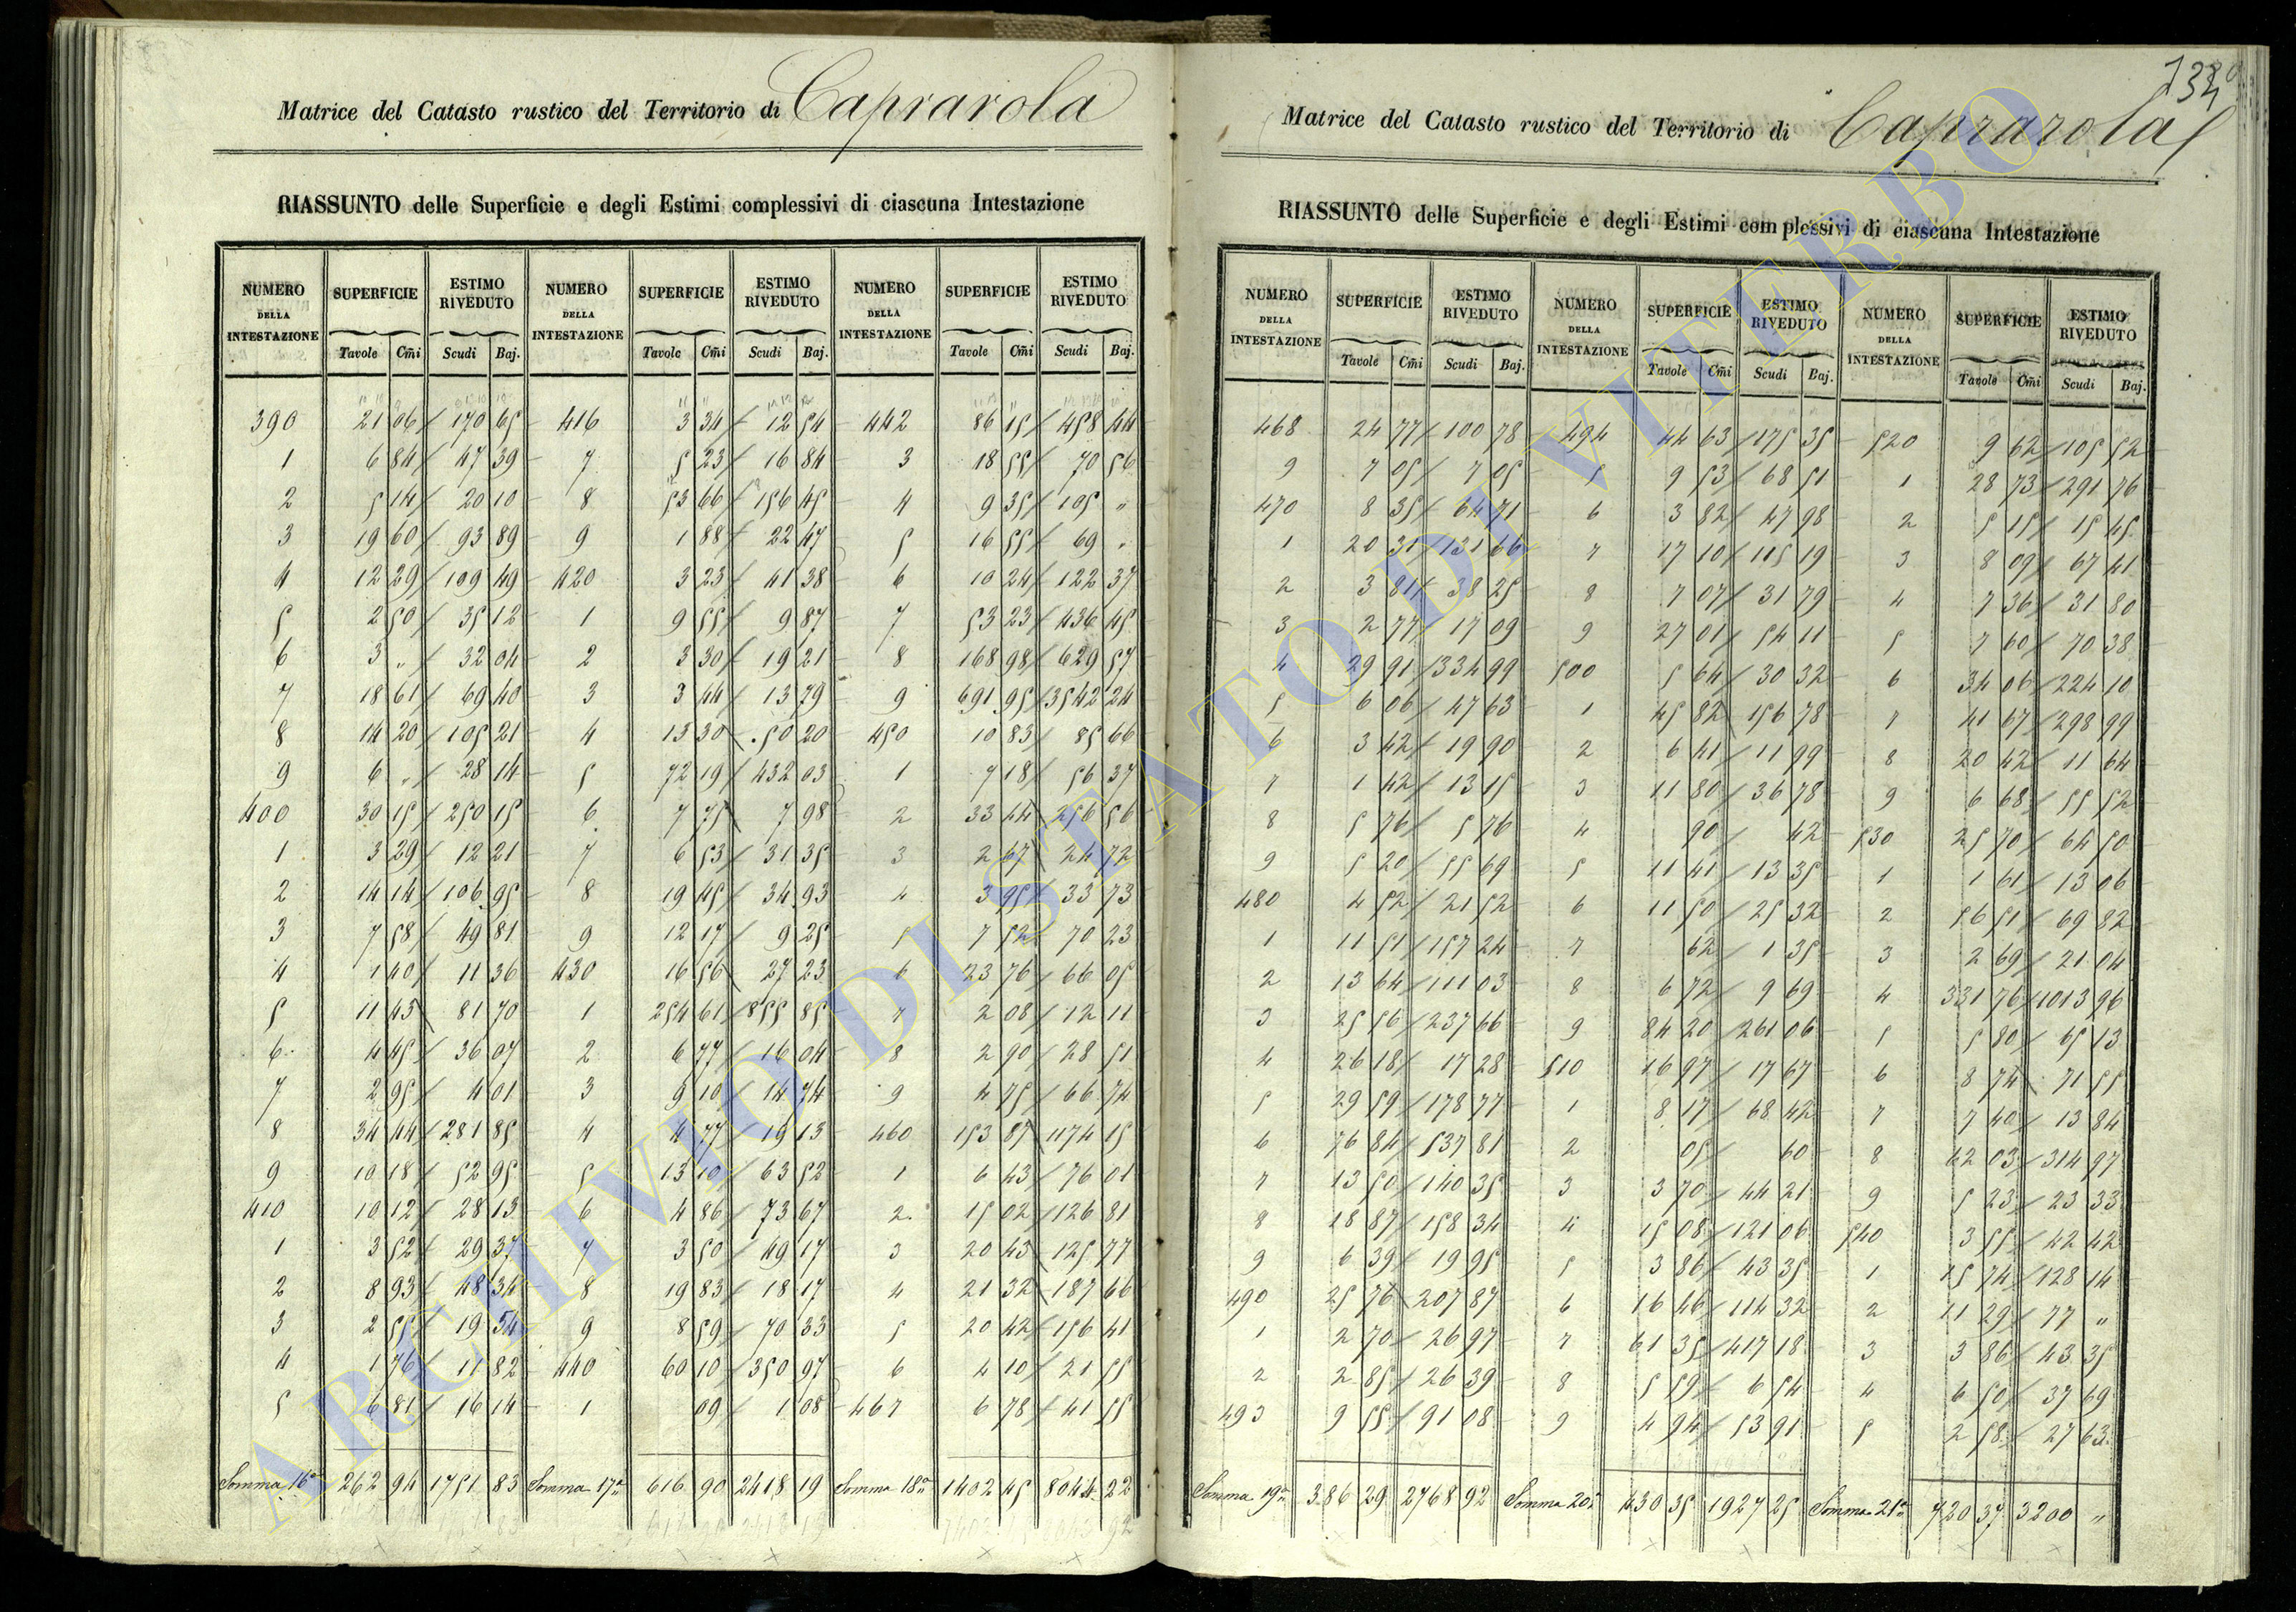 Matrice del Catasto rustico del Territorio di Caprarola
RIASSUNTO delle Superficie e degli Estimi complessivi di ciascuna Intestazione
NUMERO DELLA INTESTAZIONE SUPERFICIE ESTIMO RIVEDUTO NUMERO DELLA INTESTAZIONE SUPERFICIE ESTIMO RIVEDUTO NUMERO DELLA INTESTAZIONE SUPERFICIE ESTIMO RIVEDUTO
Tavole Cmi Scudi Baj. Tavole Cmi Scudi Baj. Tavole Cmi Scudi Baj.
390 21 06 170 65 416 3 34 12 54 442 86 15 458 44
1 6 84 47 39 7 5 23 16 84 3 18 55 70 56
2 5 14 20 10 8 53 66 156 45 4 9 35 105 "
3 19 60 93 89 9 1 88 22 47 5 16 55 69 "
4 12 29 109 49 420 3 23 41 38 6 10 24 122 37
5 2 50 35 12 1 9 55 9 87 7 53 23 436 45
6 3 " 32 04 2 3 30 19 21 8 168 98 629 57
7 18 61 69 40 3 3 44 13 79 9 691 95 3542 24
8 14 20 105 21 4 13 30 50 20 450 10 83 85 66
9 6 " 28 14 5 72 19 432 03 1 7 18 56 37
400 30 15 250 15 6 7 75 7 98 2 33 44 256 56
1 3 39 12 21 7 6 53 31 35 3 2 67 24 72
2 14 14 106 95 8 19 45 34 93 4 3 95 33 73
3 7 58 49 81 9 12 17 9 25 5 7 52 70 23
4 1 40 11 36 430 16 56 27 23 6 23 76 66 05
5 11 43 81 70 1 254 61 855 85 7 2 08 12 11
6 4 45 36 07 2 6 77 16 04 8 2 90 28 51
7 2 95 4 01 3 9 10 14 74 9 4 75 66 74
8 34 44 281 85 4 4 77 19 13 460 153 87 1174 15
9 10 18 52 95 5 13 10 63 52 1 6 43 76 01
410 10 12 28 13 6 4 86 73 67 2 15 02 126 81
1 3 52 29 37 7 3 50 49 17 3 20 43 125 77
2 8 93 48 34 8 19 83 18 17 4 21 32 187 66
3 2 55 19 54 9 8 59 70 33 5 20 42 156 41
4 1 76 11 82 440 60 10 350 97 6 4 10 21 55
5 6 81 16 14 1 09 1 08 467 6 78 41 55
Somma 16a 262 94 1751 83 Somma 17a 616 90 2418 19 Somma 18a 1402 45 8044 22
134
Matrice del Catasto rustico del Territorio di Caprarola
RIASSUNTO delle Superficie e degli Estimi complessivi di ciascuna Intestazione
NUMERO DELLA INTESTAZIONE SUPERFICIE ESTIMO RIVEDUTO NUMERO DELLA INTESTAZIONE SUPERFICIE ESTIMO RIVEDUTO NUMERO DELLA INTESTAZIONE SUPERFICIE ESTIMO RIVEDUTO
Tavole Cmi Scudi Baj. Tavole Cmi Scudi Baj. Tavole Cmi Scudi Baj.
468 24 77 100 78 494 44 63 175 35 520 9 62 105 52
9 7 05 7 05 5 9 53 68 51 1 28 73 291 76
470 8 35 64 71 6 3 82 47 98 2 5 15 15 45
1 20 31 131 66 7 17 10 115 19 3 8 09 67 41
2 3 81 38 25 8 7 07 31 79 4 7 36 31 80
3 2 77 17 09 9 27 01 54 11 5 7 60 70 38
4 29 91 334 99 500 5 64 30 32 6 34 06 224 10
5 6 06 47 63 1 45 82 156 78 7 41 67 298 99
6 3 42 19 90 2 6 41 11 99 8 20 42 11 64
7 1 42 13 15 3 11 80 36 78 9 6 68 55 52
8 5 76 5 76 4 90 42 530 25 70 64 50
9 5 20 55 69 5 11 41 13 35 1 1 61 13 06
480 4 52 21 52 6 11 50 25 32 2 56 51 69 82
1 11 51 157 24 7 62 1 35 3 2 69 21 04
2 13 64 111 03 8 6 72 9 69 4 331 76 1013 96
3 25 56 237 66 9 84 20 261 06 5 5 80 65 13
4 26 18 17 28 510 16 97 17 67 6 8 74 71 55
5 29 59 178 77 1 8 17 68 42 7 7 40 13 84
6 76 84 537 81 2 05 60 8 62 03 314 97
7 13 50 140 35 3 3 70 44 21 9 5 23 23 33
8 18 87 158 34 4 15 08 121 06 540 3 55 42 42
9 6 39 19 95 5 3 86 43 35 1 15 74 128 14
490 25 76 207 87 6 16 46 114 32 2 11 29 77 "
1 2 70 26 97 7 61 35 417 18 3 3 86 43 35
2 2 85 26 39 8 5 59 6 54 4 6 50 37 69
493 9 55 91 08 9 4 94 53 91 5 2 58 27 63
Somma 19a 386 29 2768 92 Somma 20a 430 35 1927 25 Somma 21a 720 37 3200 "
ARCHIVIO DI STATO DI VITERBO